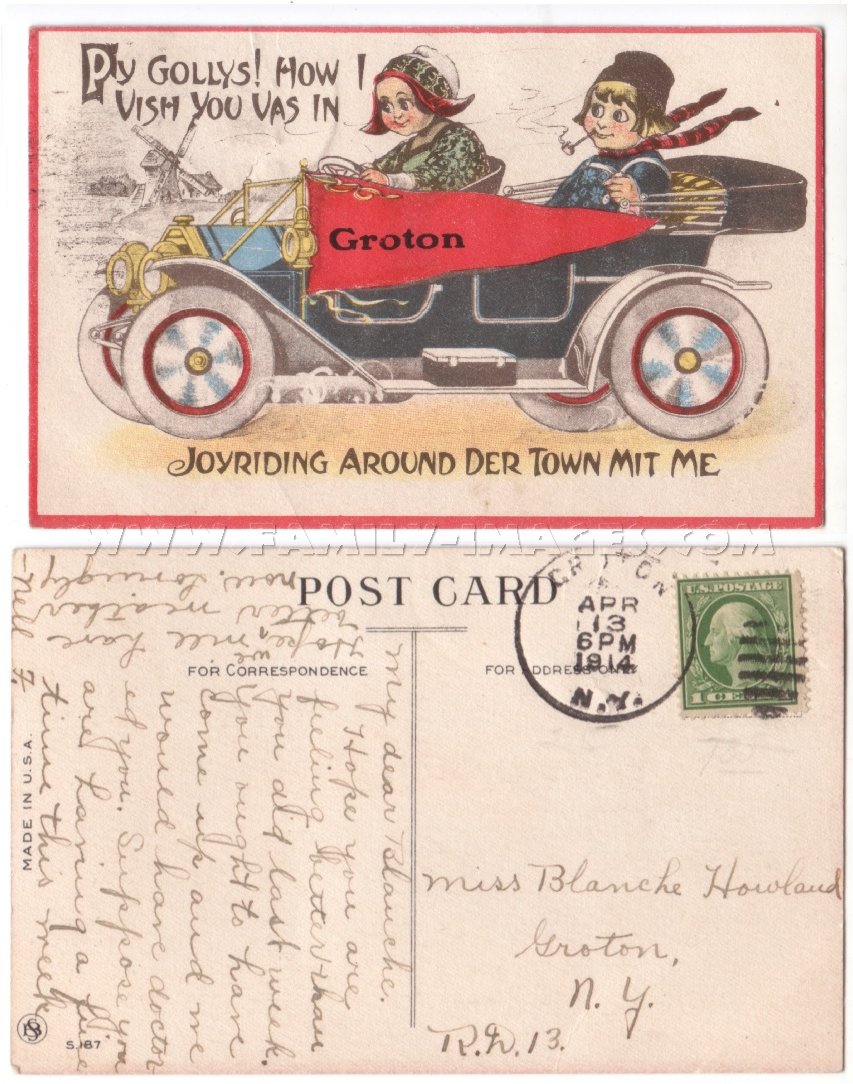 Py Gollys! How I
Vish You Vas In
Groton
Joyriding Around Der Town Mit Me
WWW.FAMILY-IMAGES.COM
POST CARD
FOR CORRESPONDENCE
FOR ADDRESS ONLY
GROTON
APR
13
6 PM
1914
N.Y.
U.S. POSTAGE
1 CENT
My dear Blanche.
Hope you are
feeling better than
you did last week.
You ought to have
come up and we
would have doctor
ed you. Suppose you
are having a fine
time this week.
Hope we will have
better weather
now. Lovingly
-Nell F.
Miss Blanche Howland
Groton,
N. Y.
R.D. 13.
MADE IN U.S.A.
S.187